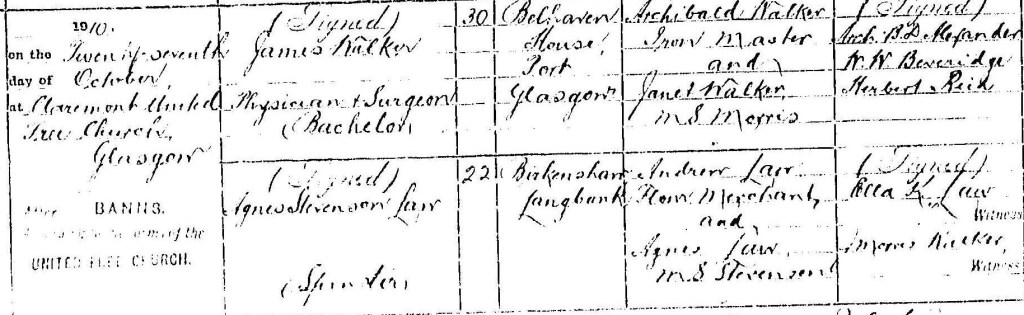 1910.
on the Twenty-seventh
day of October,
at Claremont United
Free Church,
Glasgow
After BANNS.
according to the forms of the
UNITED FREE CHURCH.
(Signed)
James Walker
Physician & Surgeon
(Bachelor)
(Signed)
Agnes Stevenson Law
(Spinster)
30
22
Belhaven
House,
Port
Glasgow
Birkenshaw
Langbank
Archibald Walker
Iron Master
and
Janet Walker,
m.S Morris
Andrew Law
Flour Merchant,
and
Agnes Law,
m.S Stevenson
(Signed)
Arch. B.D. Alexander
W. W. Beveridge
Herbert Reid
(Signed)
Ella K. Law
Witness
Morris Walker,
Witness